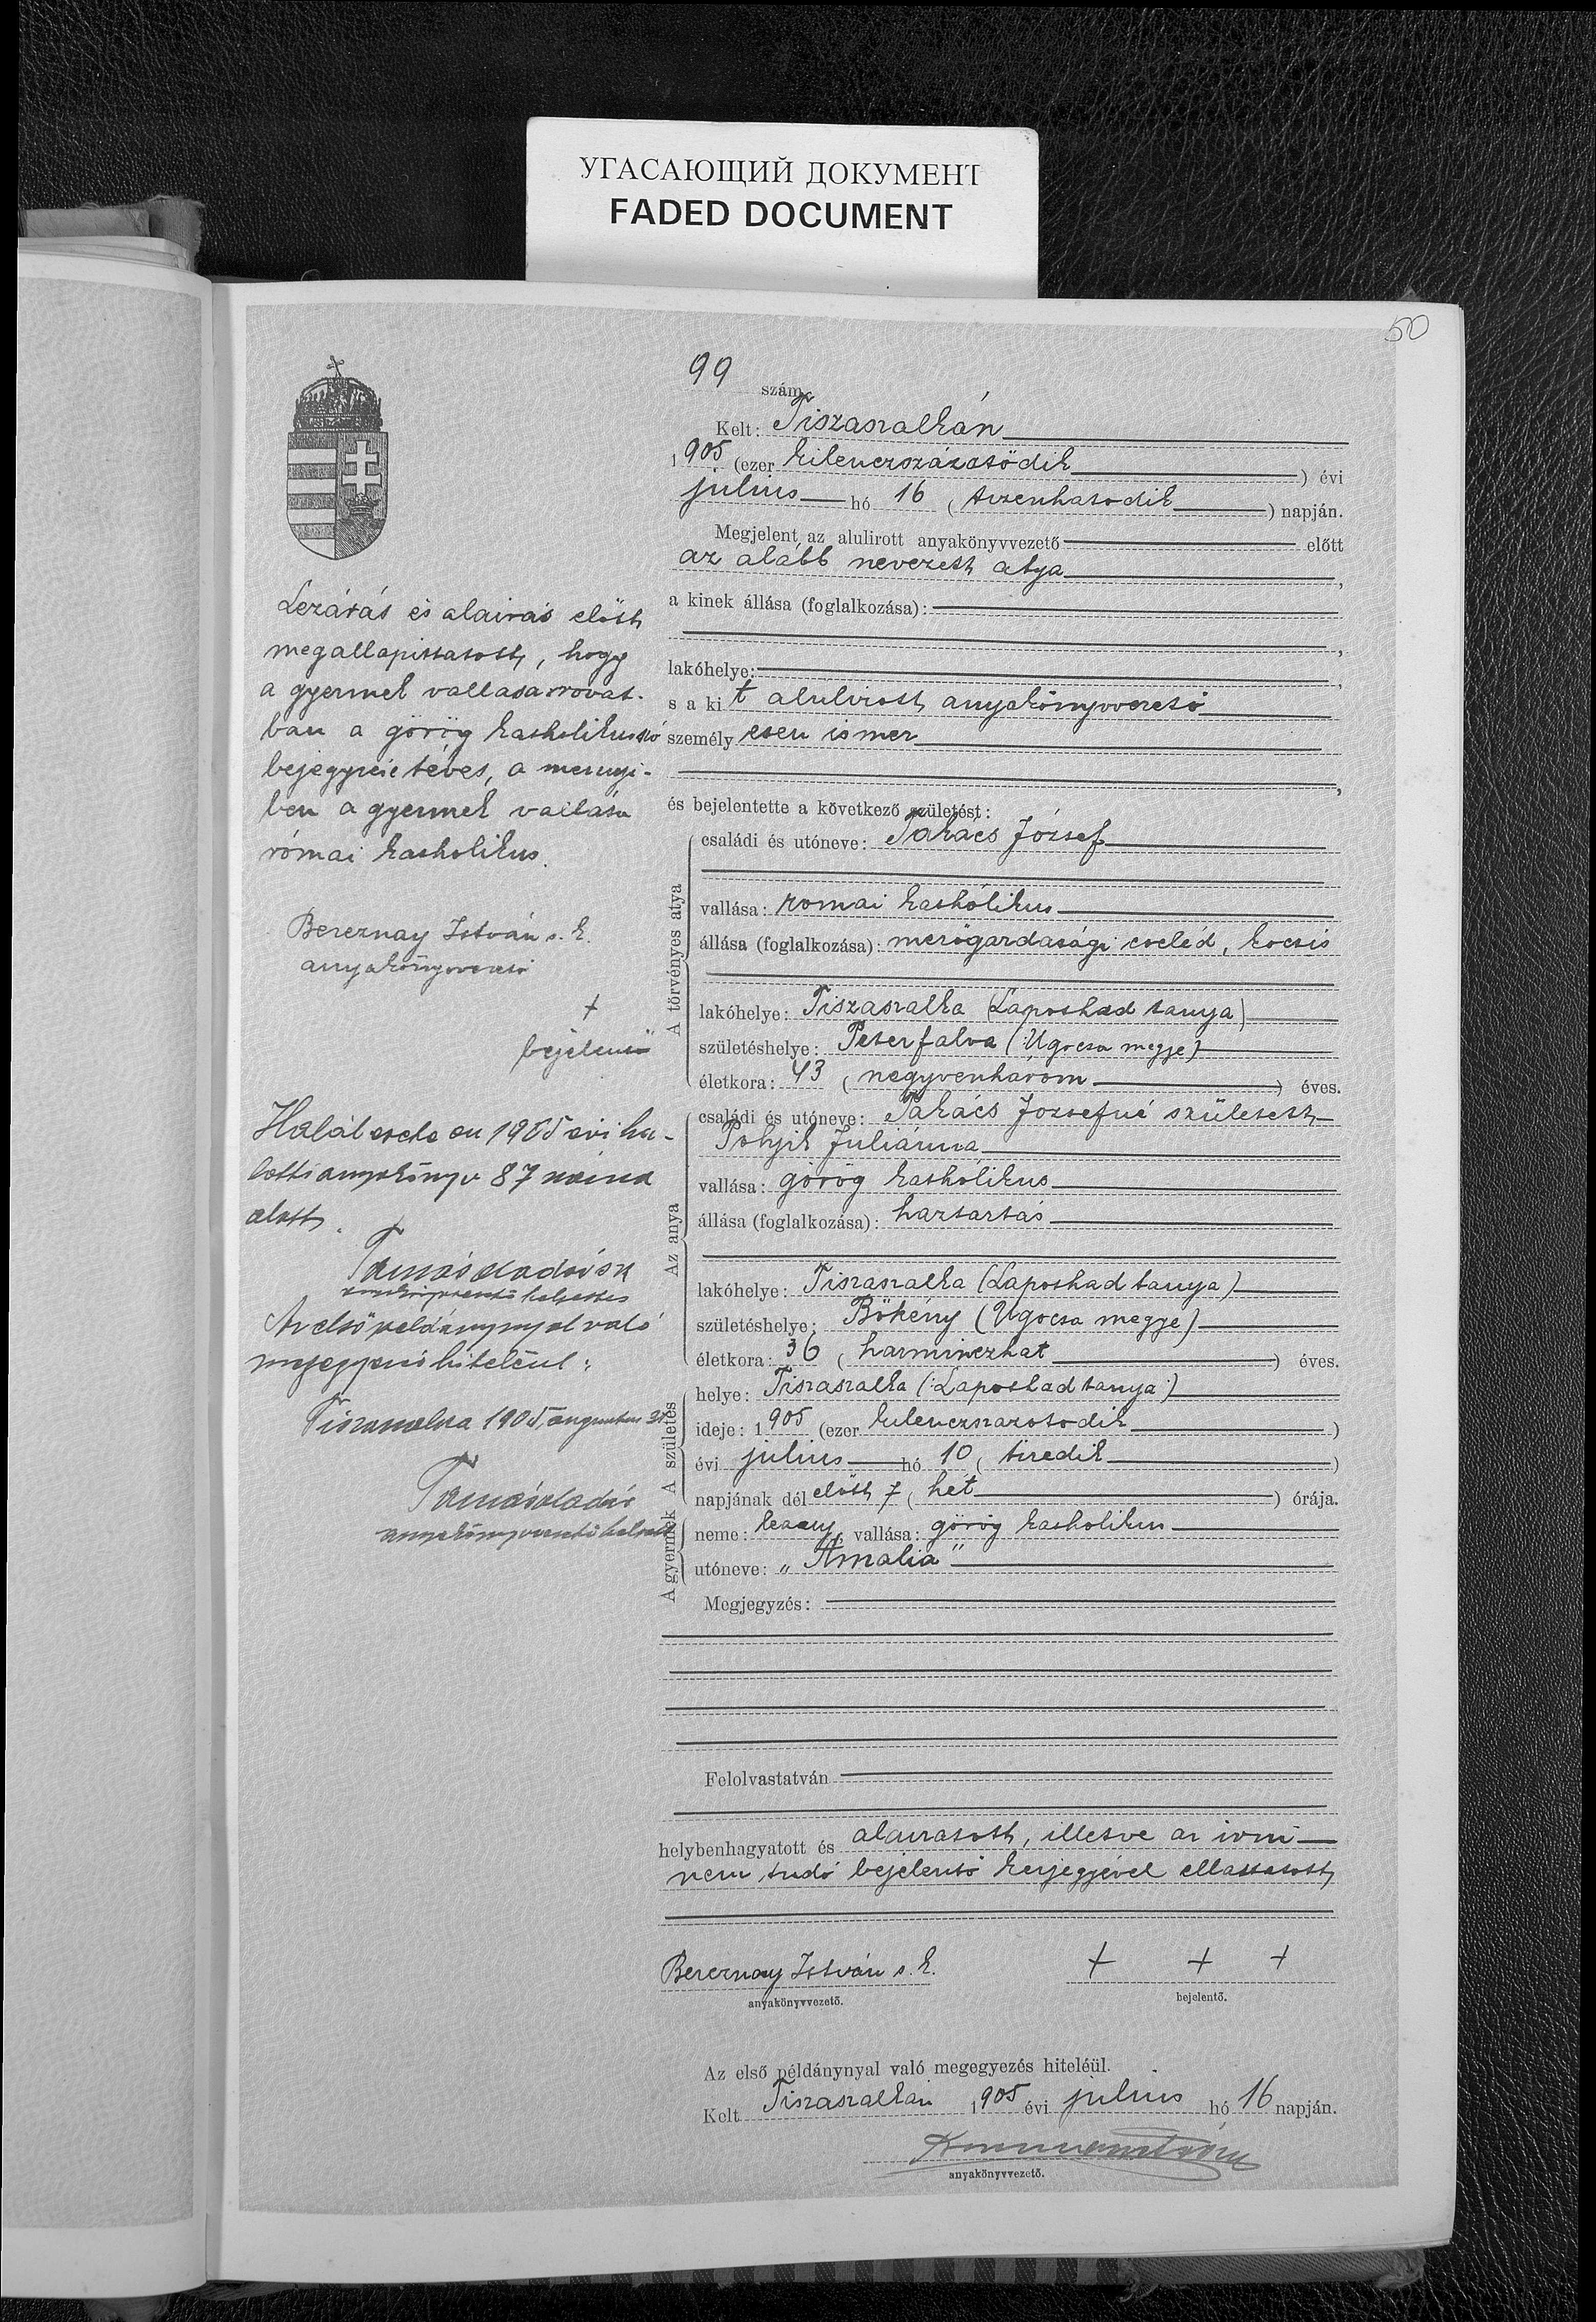 УГАСАЮЩИЙ ДОКУМЕНТ
FADED DOCUMENT
50
99 szám.
Kelt: Tiszaszalkán
1905 (ezer kilenczszázötödik) évi
julius hó 16 (tizenhatodik) napján.
Megjelent az alulirott anyakönyvvezető előtt
az alább nevezett atya,
a kinek állása (foglalkozása):
,
lakóhelye: ,
s a kit alulirott anyakönyvvezető
személyesen ismer
,
és bejelentette a következő születést:
A törvényes atya
családi és utóneve: Takács József
vallása: romai katholikus
állása (foglalkozása): mezőgazdasági cseléd, kocsis
lakóhelye: Tiszaszalka (Laposhad tanya)
születéshelye: Péterfalva (:Ugocsa megye)
életkora: 43 (negyvenhárom) éves.
Az anya
családi és utóneve: Takács Józsefné született
Juliánna
vallása: görög katholikus
állása (foglalkozása): háztartás
lakóhelye: Tiszaszalka (Laposhad tanya)
születéshelye: Bökény (Ugocsa megye)
életkora: 36 (harminczhat) éves.
A születés
helye: Tiszaszalka (:Laposhad tanya:)
ideje: 1905 (ezer kilenczszázötödik)
évi julius hó 10 (tizedik)
napjának dél előtt 7 (hét) órája.
A gyermek
neme: leány, vallása: görög katholikus
utóneve: „Amalia"
Megjegyzés:
Felolvastatván
helybenhagyatott és aláiratott, illetve az irni
nem tudó bejelentő kézjegyével elláttatott
Bereznay István s. k.
anyakönyvvezető.
+ + +
bejelentő.
Az első példánynyal való megegyezés hiteléül.
Kelt Tiszaszalkán 1905 évi julius hó 16 napján.
anyakönyvvezető.
Lezárás és aláirás előtt
megállapittatott, hogy
a gyermek vallása rovat-
ban a görög katholikus szó
bejegyzése téves, a mennyi-
ben a gyermek vallása
római katholikus.
Bereznay István s. k.
anyakönyvvezető
+
bejelentő
Halál esete az 1905 évi ha-
lotti anyakönyv 87 száma
alatt.
anyakönyvvezető helyettes
Az első példánynyal való
megegyezés hiteléül:
Tiszaszalka 1905, augusztus
anyakönyvvezető helyettes